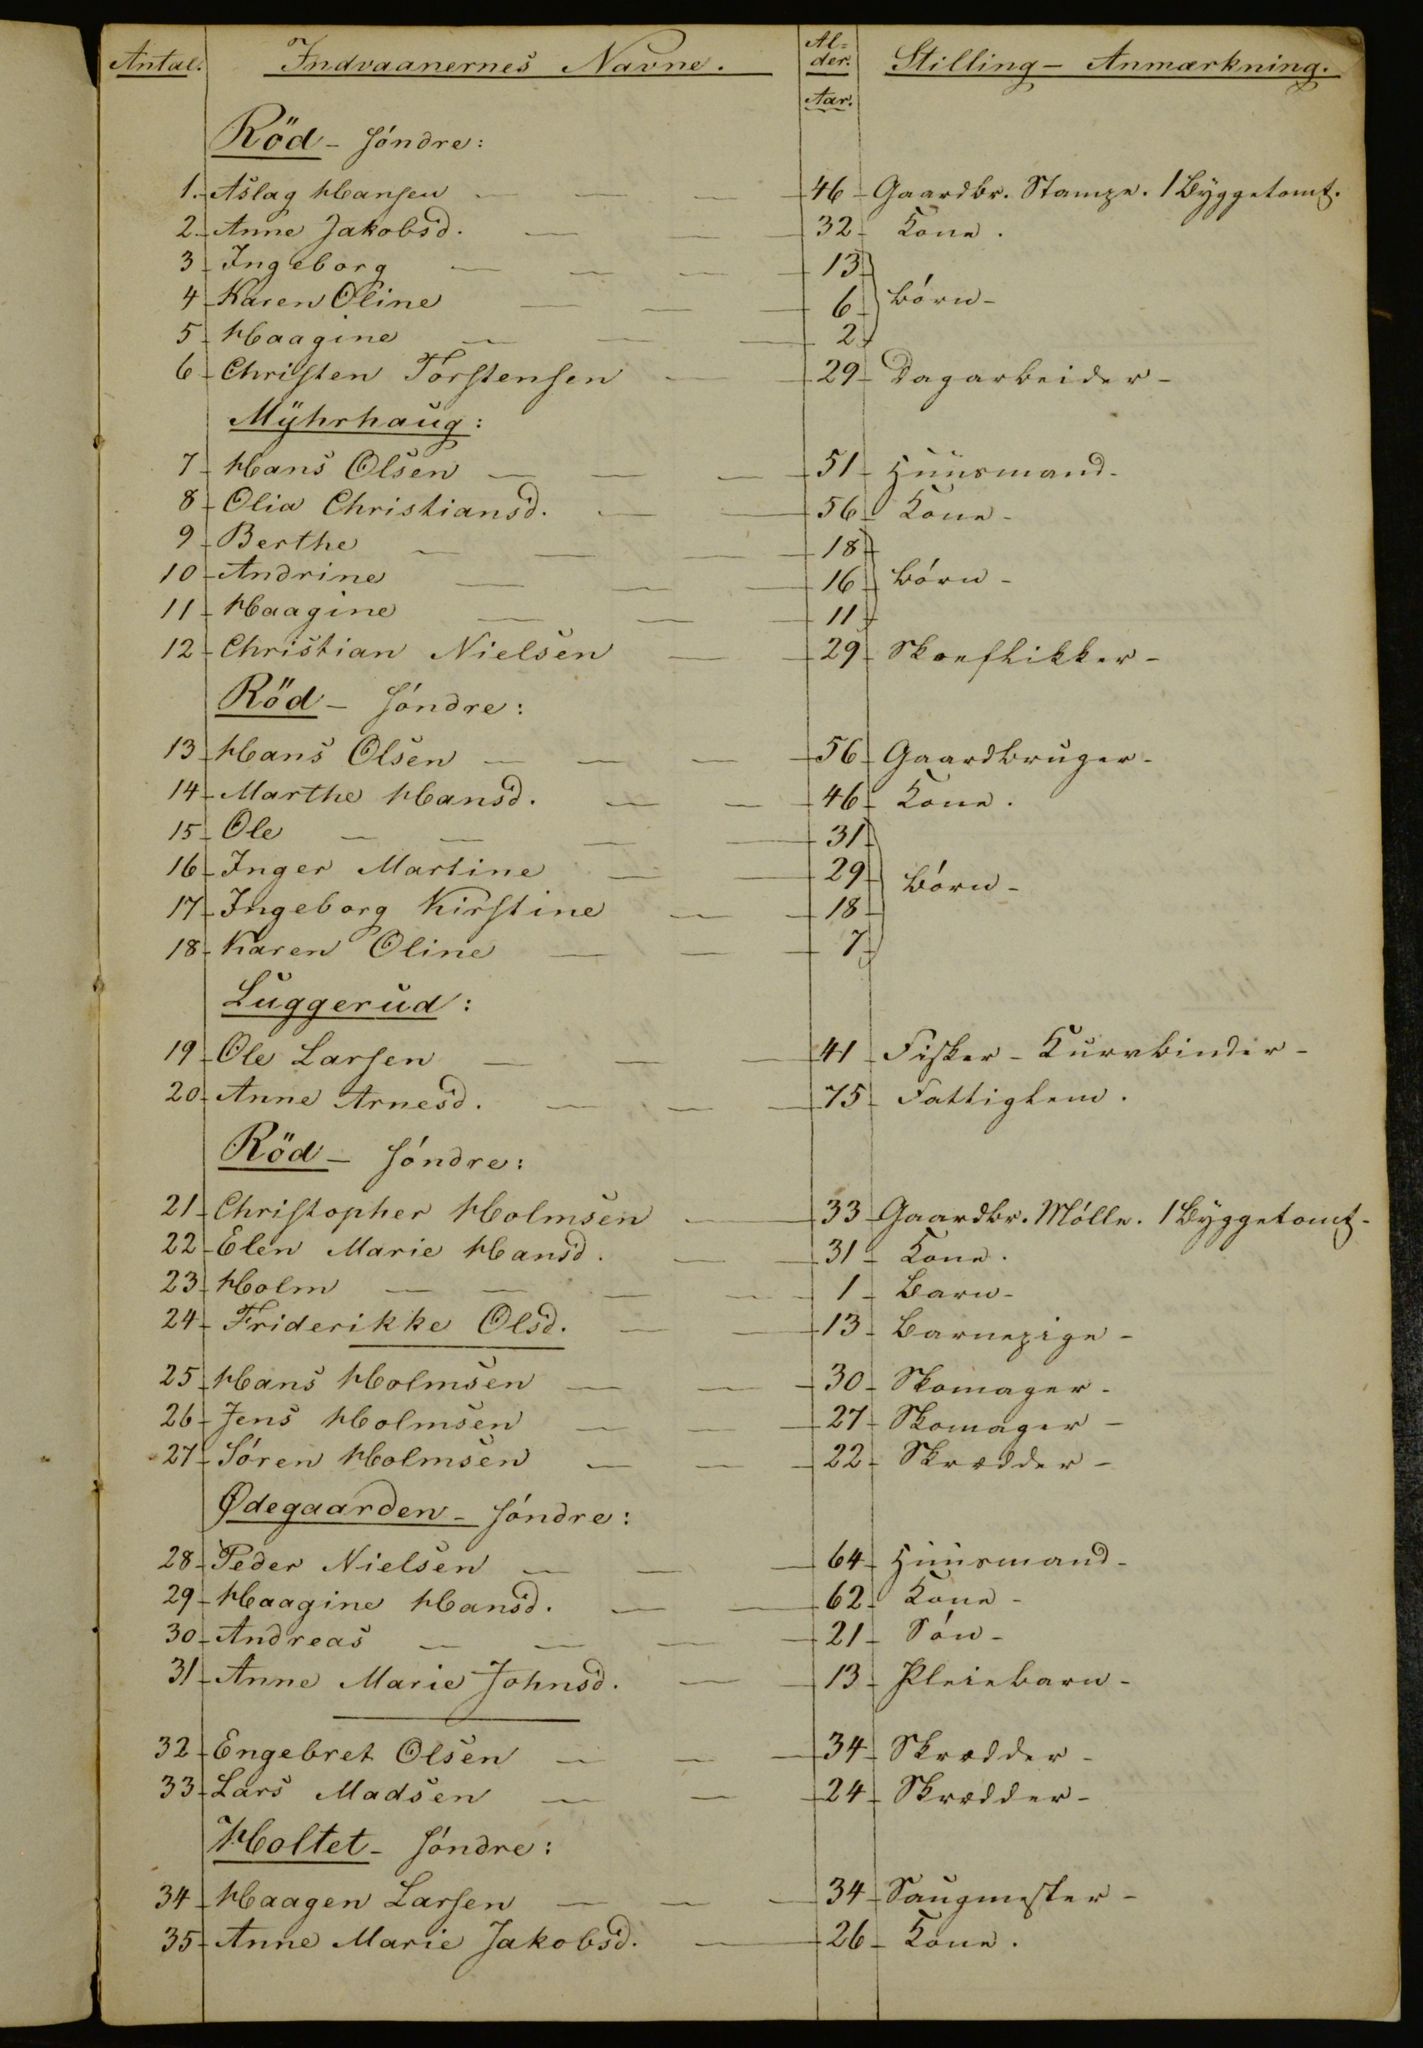 Antal. Indvaanernes Navne. Al=der. Aar. Stilling - Anmærkning.
Röd - söndre:
1. Aslag Hansen 46 Gaardbr. Stampe. 1 Byggetomt.
2. Anne Jakobsd. 32 Kone.
3 Ingeborg 13
4 Karen Oline 6 Börn
5 Haagine 2
6 Christen Torstensen 29 Dagarbeider
Myhrhaug:
7 Hans Olsen 51 Huusmand
8 Olia Christiansd. 56 Kone
9 Berthe 18
10 Andrine 16 Börn
11 Haagine 11
12 Christian Nielsen 29 Skoeflikker
Röd - söndre:
13 Hans Olsen 56 Gaardbruger
14 Marthe Hansd. 46 Kone.
15 Ole 31
16 Inger Martine 29 Börn
17 Ingeborg Kirstine 18
18 Karen Oline 7
Luggerud:
19 Ole Larsen 41 Fisker - Kurvbinder
20 Anne Arnesd. 75 Fattiglem.
Röd - söndre:
21 Christopher Holmsen 33 Gaardbr. Mölle. 1 Byggetomt
22 Elen Marie Hansd. 31 Kone.
23 Holm 1 Barn
24 Friderikke Olsd. 13 Barnepige
25 Hans Holmsen 30 Skomager
26 Jens Holmsen 27 Skomager
27 Sören Holmsen 22 Skrædder
Ødegaarden - söndre:
28 Peder Nielsen 64 Huusmand
29 Haagine Hansd. 62 Kone
30 Andreas 21 Sön
31 Anne Marie Johnsd. 13 Pleiebarn
32 Engebret Olsen 34 Skrædder
33 Lars Madsen 24 Skrædder
Holtet - söndre:
34 Haagen Larsen 34 Saugmester
35 Anne Marie Jakobsd. 26 Kone.